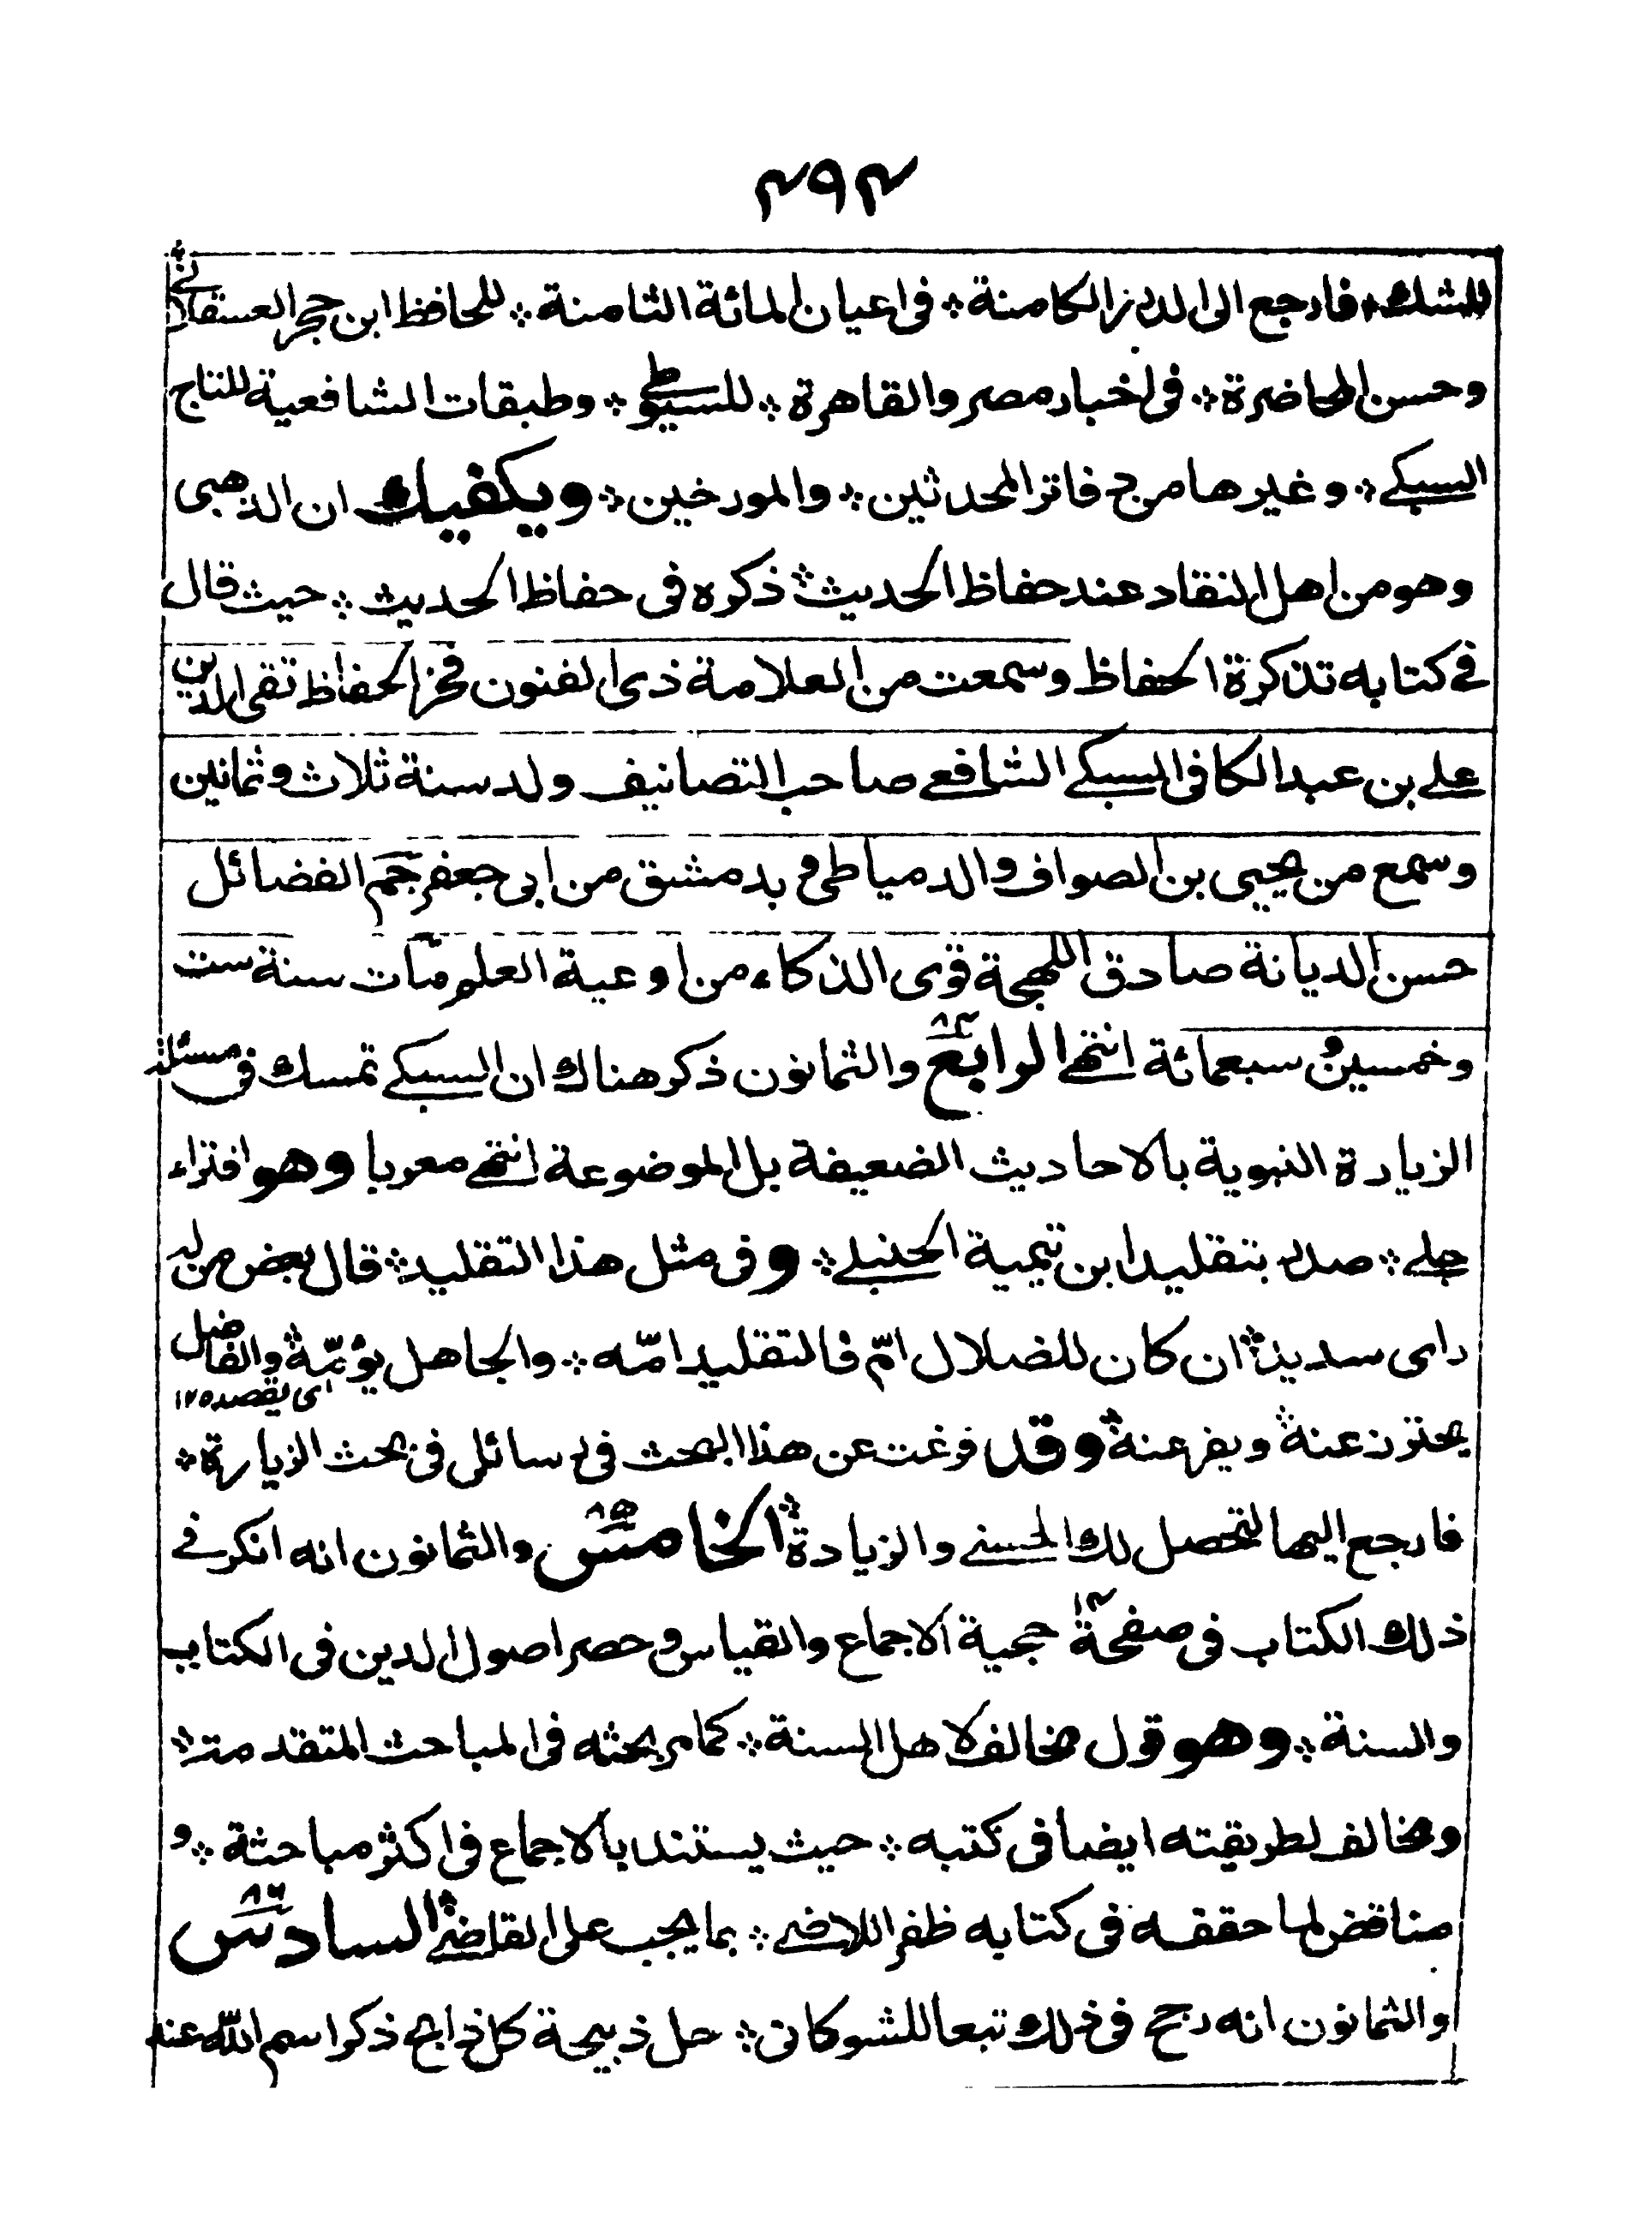 ٤٩٤
للشك ؞ فارجع الى الدرر الكامنة ؞ فى اعيان المائة الثامنة ؞ للحافظ ابن حجر العسقلانى ؞
وحسن المحاضرة ؞ فى اخبار مصر والقاهرة ؞ للسيوطى ؞ وطبقات الشافعية للتاج
السبكى ؞ وغيرها من دفاتر المحدثين ؞ والمورخين ؞ ويكفيك ان الذهبى
وهو من اهل النقاد عند حفاظ الحديث ؞ ذكره فى حفاظ الحديث ؞ حيث قال
فى كتابه تذكرة الحفاظ وسمعت من العلامة ذى الفنون فخر الحفاظ تقى الدين
على بن عبد الكافى السبكى الشافعى صاحب التصانيف ولد سنة ثلاث وثمانين
وسمع من يحيى بن الصواف والدمياطى و بدمشق من ابى جعفر جم الفضائل
حسن الديانة صادق اللهجة قوى الذكاء من اوعية العلم مات سنة ست
وخمسين و سبعمائة انتهى الرابع ٨٤ والثمانون ذكر هناك ان السبكى تمسك فى مسئلة
الزيارة النبوية بالاحاديث الضعيفة بل الموضوعة انتهى معربا وهو افتراء
جلى ؞ صدر بتقليد ابن تيمية الحنبلى ؞ وفى مثل هذا التقليد ؞ قال بعض من له
راى سديد ؞ ان كان للضلال امّ فالتقليد امّه ؞ والجاهل يؤمّه ؞ والفاضل
اى يقصده ١٢
يحترز عنه ؞ ويفر عنه ؞ وقد فرغت عن هذا البحث فى رسائلى فى بحث الزيارة ؞
فارجع اليها لتحصل لك الحسنى والزيادة ؞ الخامس ٨٥ والثمانون انه انكر فى
ذلك الكتاب فى صفحة ١٤ حجية الاجماع والقياس و حصر اصول الدين فى الكتاب
والسنة ؞ وهو قول مخالف لاهل السنة ؞ كما مر بحثه فى المباحث المتقدمة ؞
ومخالف لطريقته ايضا فى كتبه ؞ حيث يستند بالاجماع فى اكثر مباحثة ؞ و
مناقض لما حققه فى كتابه ظفر اللاضى ؞ بما يجب على القاضى ؞ السادس ٨٦
والثمانون انه رجح فى ذلك تبعا للشوكانى ؞ حل ذبيحة كل ذابح ذكر اسم الله عند